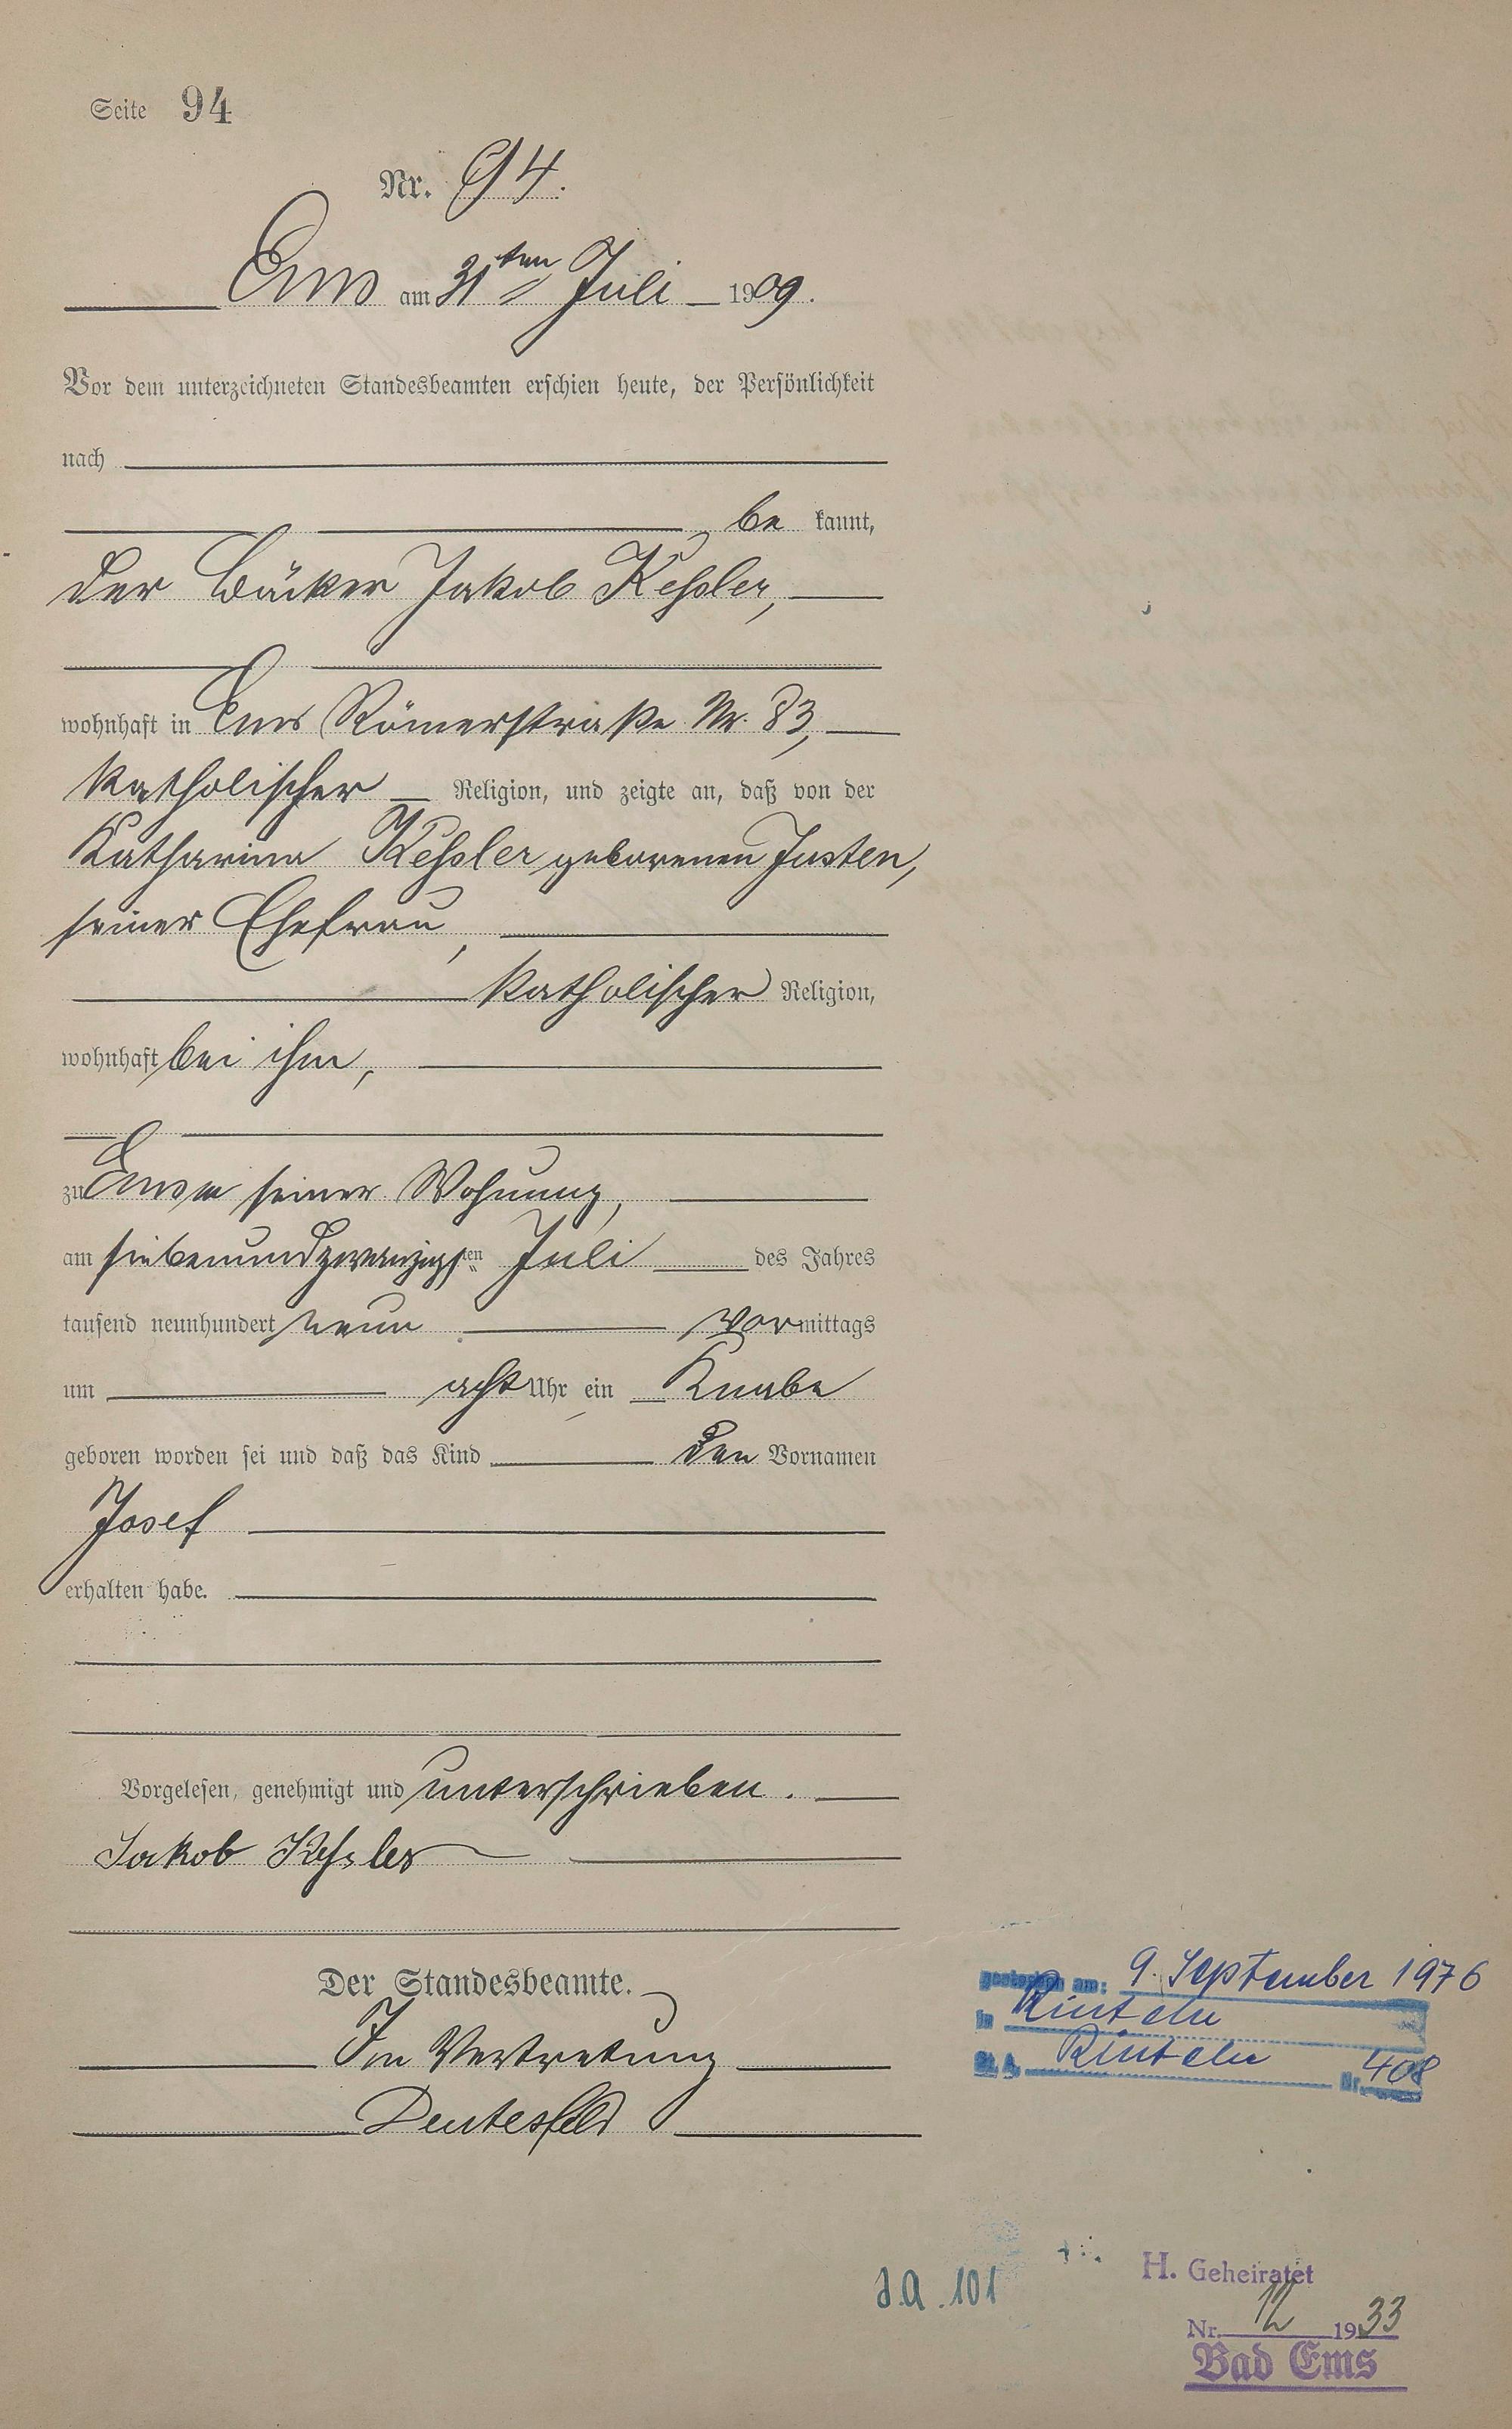 Seite 94
Nr. 94.
Ems am 31ten Juli 1909.
Vor dem unterzeichneten Standesbeamten erschien heute, der Persönlichkeit
nach
be kannt,
der Bäcker Jakob Keßler,
wohnhaft in Ems Römerstraße Nr. 83,
katholischer Religion, und zeigte an, daß von der
Katharina Keßler geborenen Justen,
seiner Ehefrau,
katholischer Religion,
wohnhaft bei ihm,
zu Ems in seiner Wohnung,
am siebenundzwanzigsten Juli des Jahres
tausend neunhundert neun vormittags
um acht Uhr ein Knabe
geboren worden sei und daß das Kind den Vornamen
Josef
erhalten habe.
Vorgelesen, genehmigt und unterschrieben.
Jakob Keßler
Der Standesbeamte.
In Vertretung
gestorben am: 9. September 1976
in Rinteln
St. A. Rinteln Nr. 408
J.A. 101
H. Geheiratet
Nr. 12 1933
Bad Ems